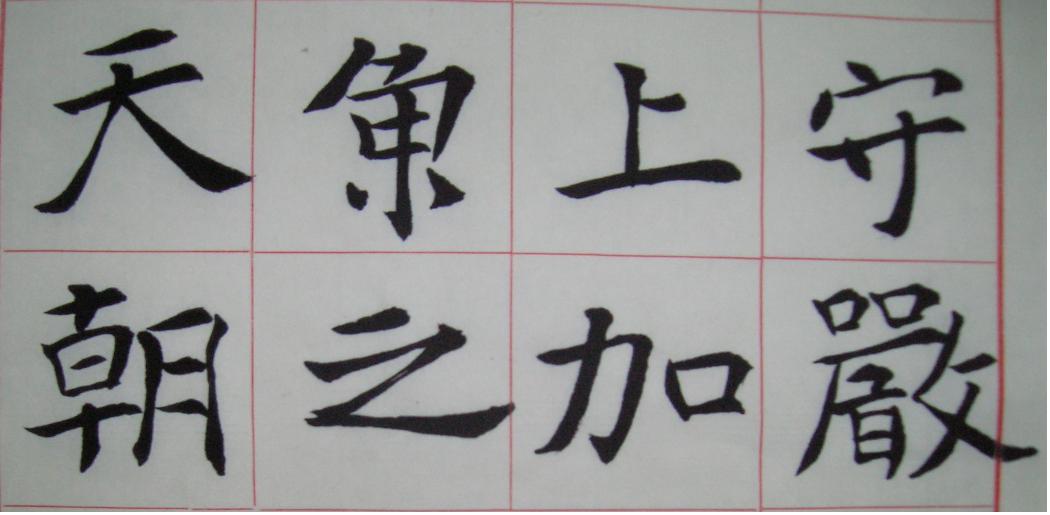 守嚴
上加
之
天朝